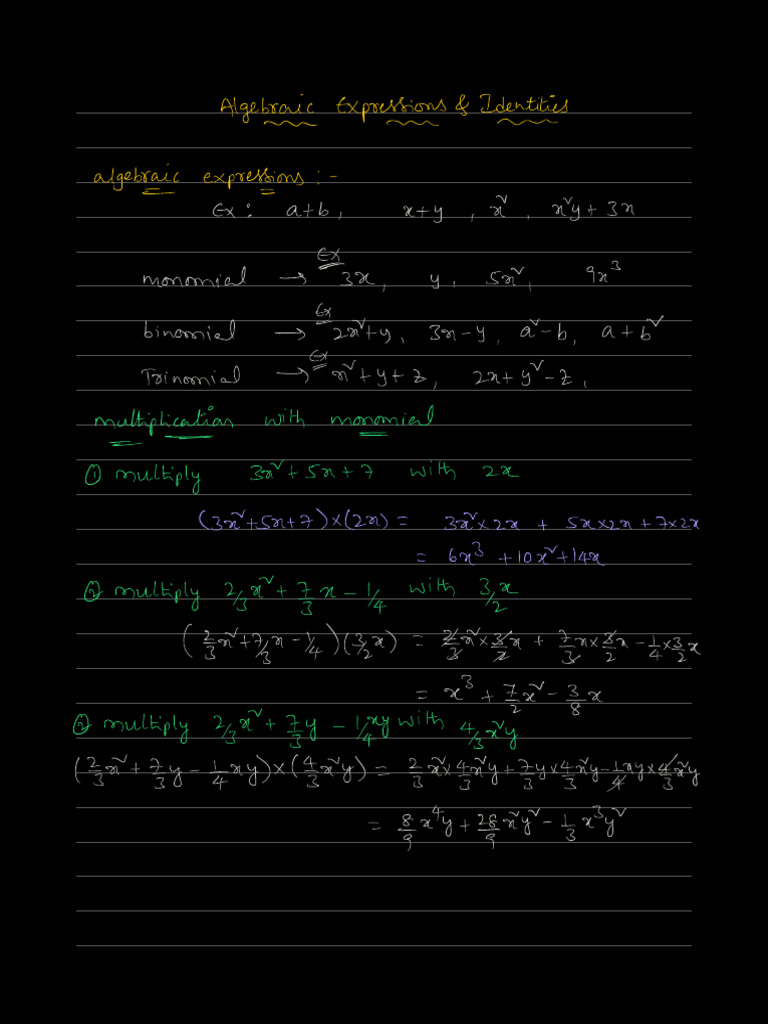 Algebraic Expressions & Identities
algebraic expressions :-
Ex: a+b, x+y, x², x²y + 3x
Ex
monomial → 3x, y, 5x², 9x³
Ex
binomial → 2x²+y, 3x-y, a²-b, a+b²
Ex
Trinomial → x²+y+z, 2x+y²-z,
multiplication with monomial
① multiply 3x²+5x+7 with 2x
(3x²+5x+7)×(2x) = 3x²×2x + 5x×2x+7×2x
= 6x³ +10x²+14x
② multiply 2/3x²+7/3x-1/4 with 3/2x
(2/3x²+7/3x-1/4)(3/2x) = 2/3x²×3/2x + 7/3x×3/2x-1/4×3/2x
= x³+7/2x²-3/8x
② multiply 2/3x²+7/3y-1/4xy with 4/3x²y
(2/3x²+7/3y-1/4xy)×(4/3x²y) = 2/3x²×4/3x²y+7/3y×4/3x²y-1/4xy×4/3x²y
= 8/9x⁴y+28/9x²y²-1/3x³y²